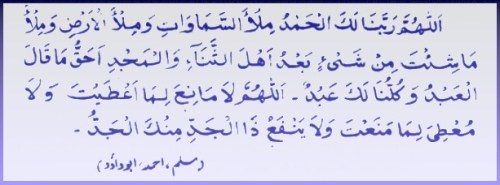 اَللّٰهُمَّ رَبَّنَا لَكَ الْحَمْدُ مِلَأَ السَّمَاوَاتِ وَمِلْأُ الْاَرْضِ وَمِلْأُ
مَا شِئْتَ مِنْ شَیْءٍ بَعْدُ اَهْلَ الثَّنَآءِ، وَالْمَجْدِ اَحَقُّ مَا قَالَ
الْعَبْدُ وَكُلُّنَا لَكَ عَبْدٌ ۔ اَللّٰهُمَّ لَا مَانِعَ لِمَا اَعْطَيْتَ وَلَا
مُعْطِیَ لِمَا مَنَعْتَ وَلَا يَنْفَعُ ذَا الْجَدِّ مِنْكَ الْجَدُّ ۔
(مسلم، احمد، ابوداؤد)